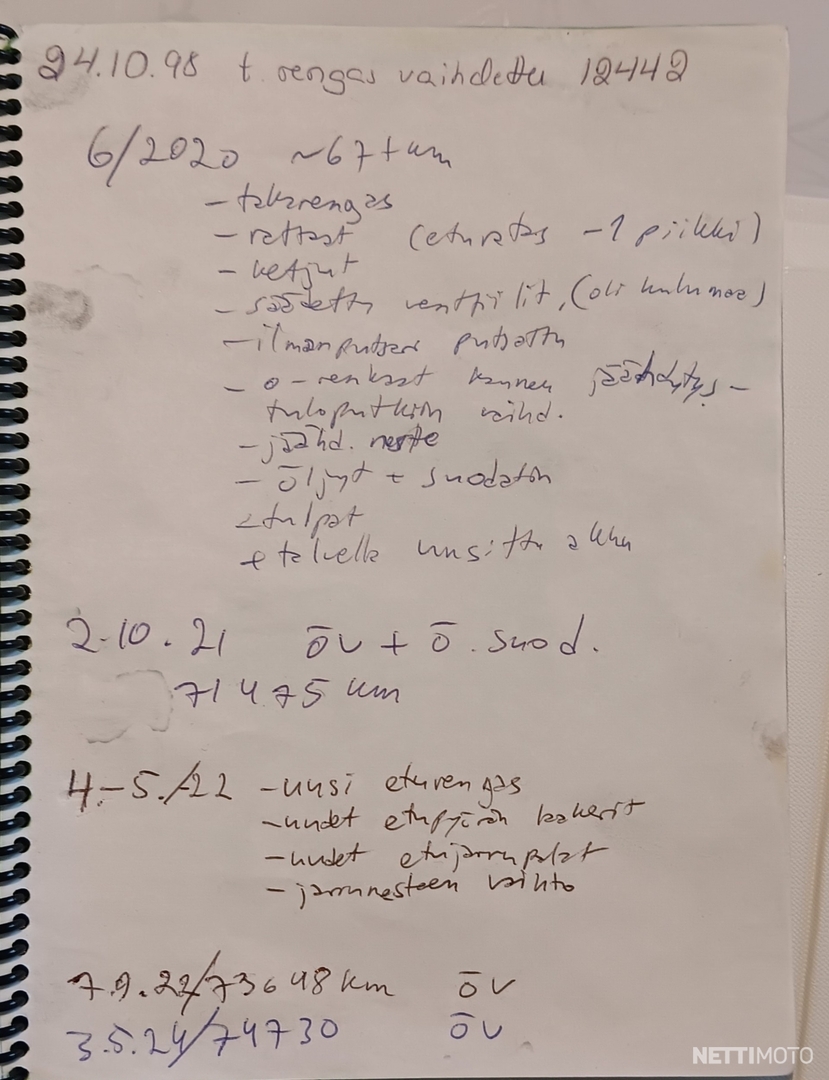 24.10.98 t. rengas vaihdettu 12442
6/2020 ~67 tkm
- takarengas
- rattaat (eturatas -1 piikki)
- ketjut
- säädetty venttiilit, (oli kulunaa)
- ilmanputsari putsattu
- o-renkaat kannen jäähdytys-
tuloputkiin vaihd.
- jäähd. neste
- öljyt + suodatin
- tulpat
+ talvella uusittu akku
2.10.21 öv + ö.suod.
71475 km
4.-5./22 - uusi eturengas
- uudet etupyörän laakerit
- uudet etujarrupalat
- jarrunesteen vaihto
7.9.22/73648 km öv
3.5.24/74730 öv
NETTIMOTO